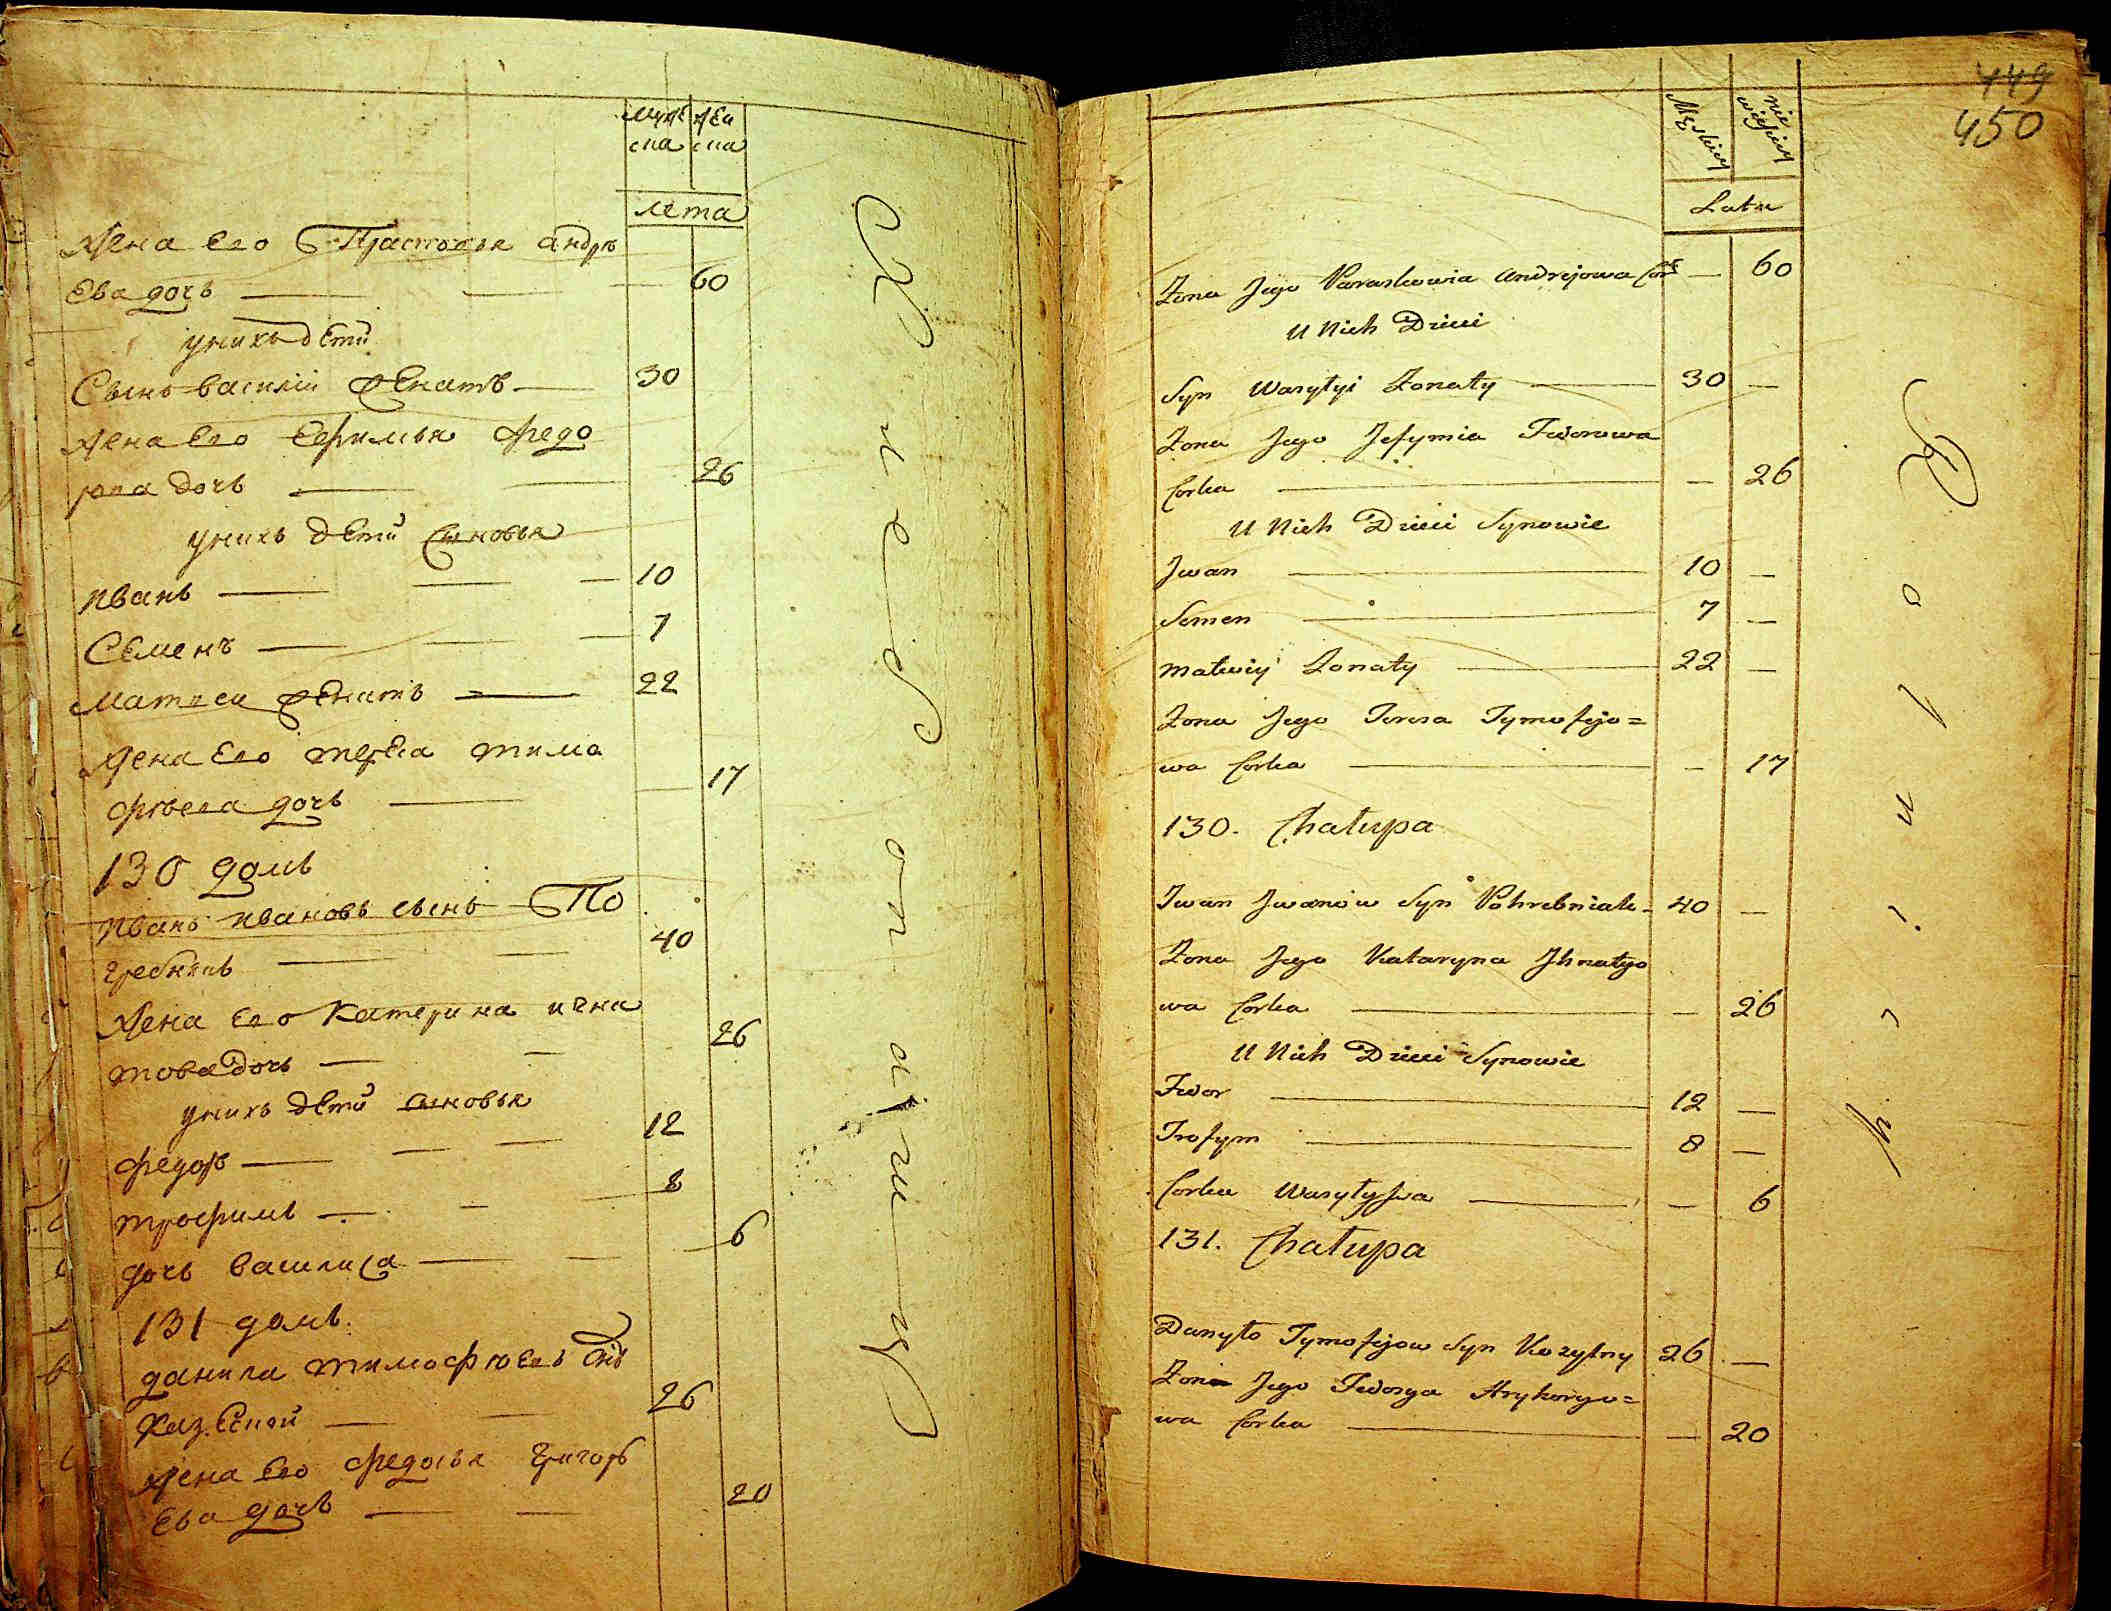 мужеска женска
лета
Жена его Прасковья андре
ева дочь 60
у них дети
Сынъ василій женатъ 30
Жена его Ефимья федо
рова дочь 26
у нихъ дети сыновья
иванъ 10
Семенъ 7
матвеи женатъ 22
Жена его тереса тимо
фѣева дочь 17
130 домъ
иванъ ивановъ сынъ По
гребнякъ 40
Жена его Катерина игна
това дочь 26
у нихъ дети сыновья
федоръ 12
трофимъ 8
дочь василиса 6
131 домъ
данила тимофѣевъ снъ
26
Жена его федосья григорь
ева дочь 20
149
450
Męskiey Niewieściey
Lata
Żona Jego Paraskowia Andrejowa Cork 60
U Nich Dzieci
Syn Wasylyi Żonaty 30
Żona Jego Jefymia Fedorowa
Corka 26
U Nich Dzieci Synowie
Jwan 10
Semen 7
Matwiy Żonaty 22
Żona Jego Teresa Tymofijo=
wa Corka 17
130. Chałupa
Iwan Jwanow Syn Pohrebniak 40
Żona Jego Kataryna Jhnatyo
wa Corka 26
U Nich Dzieci Synowie
Fedor 12
Trofym 8
Corka Wasylyssa 6
131. Chałupa
Danyło Tymofijow Syn 26
Żona Jego Fedosya Hryhoryo=
wa Corka 20